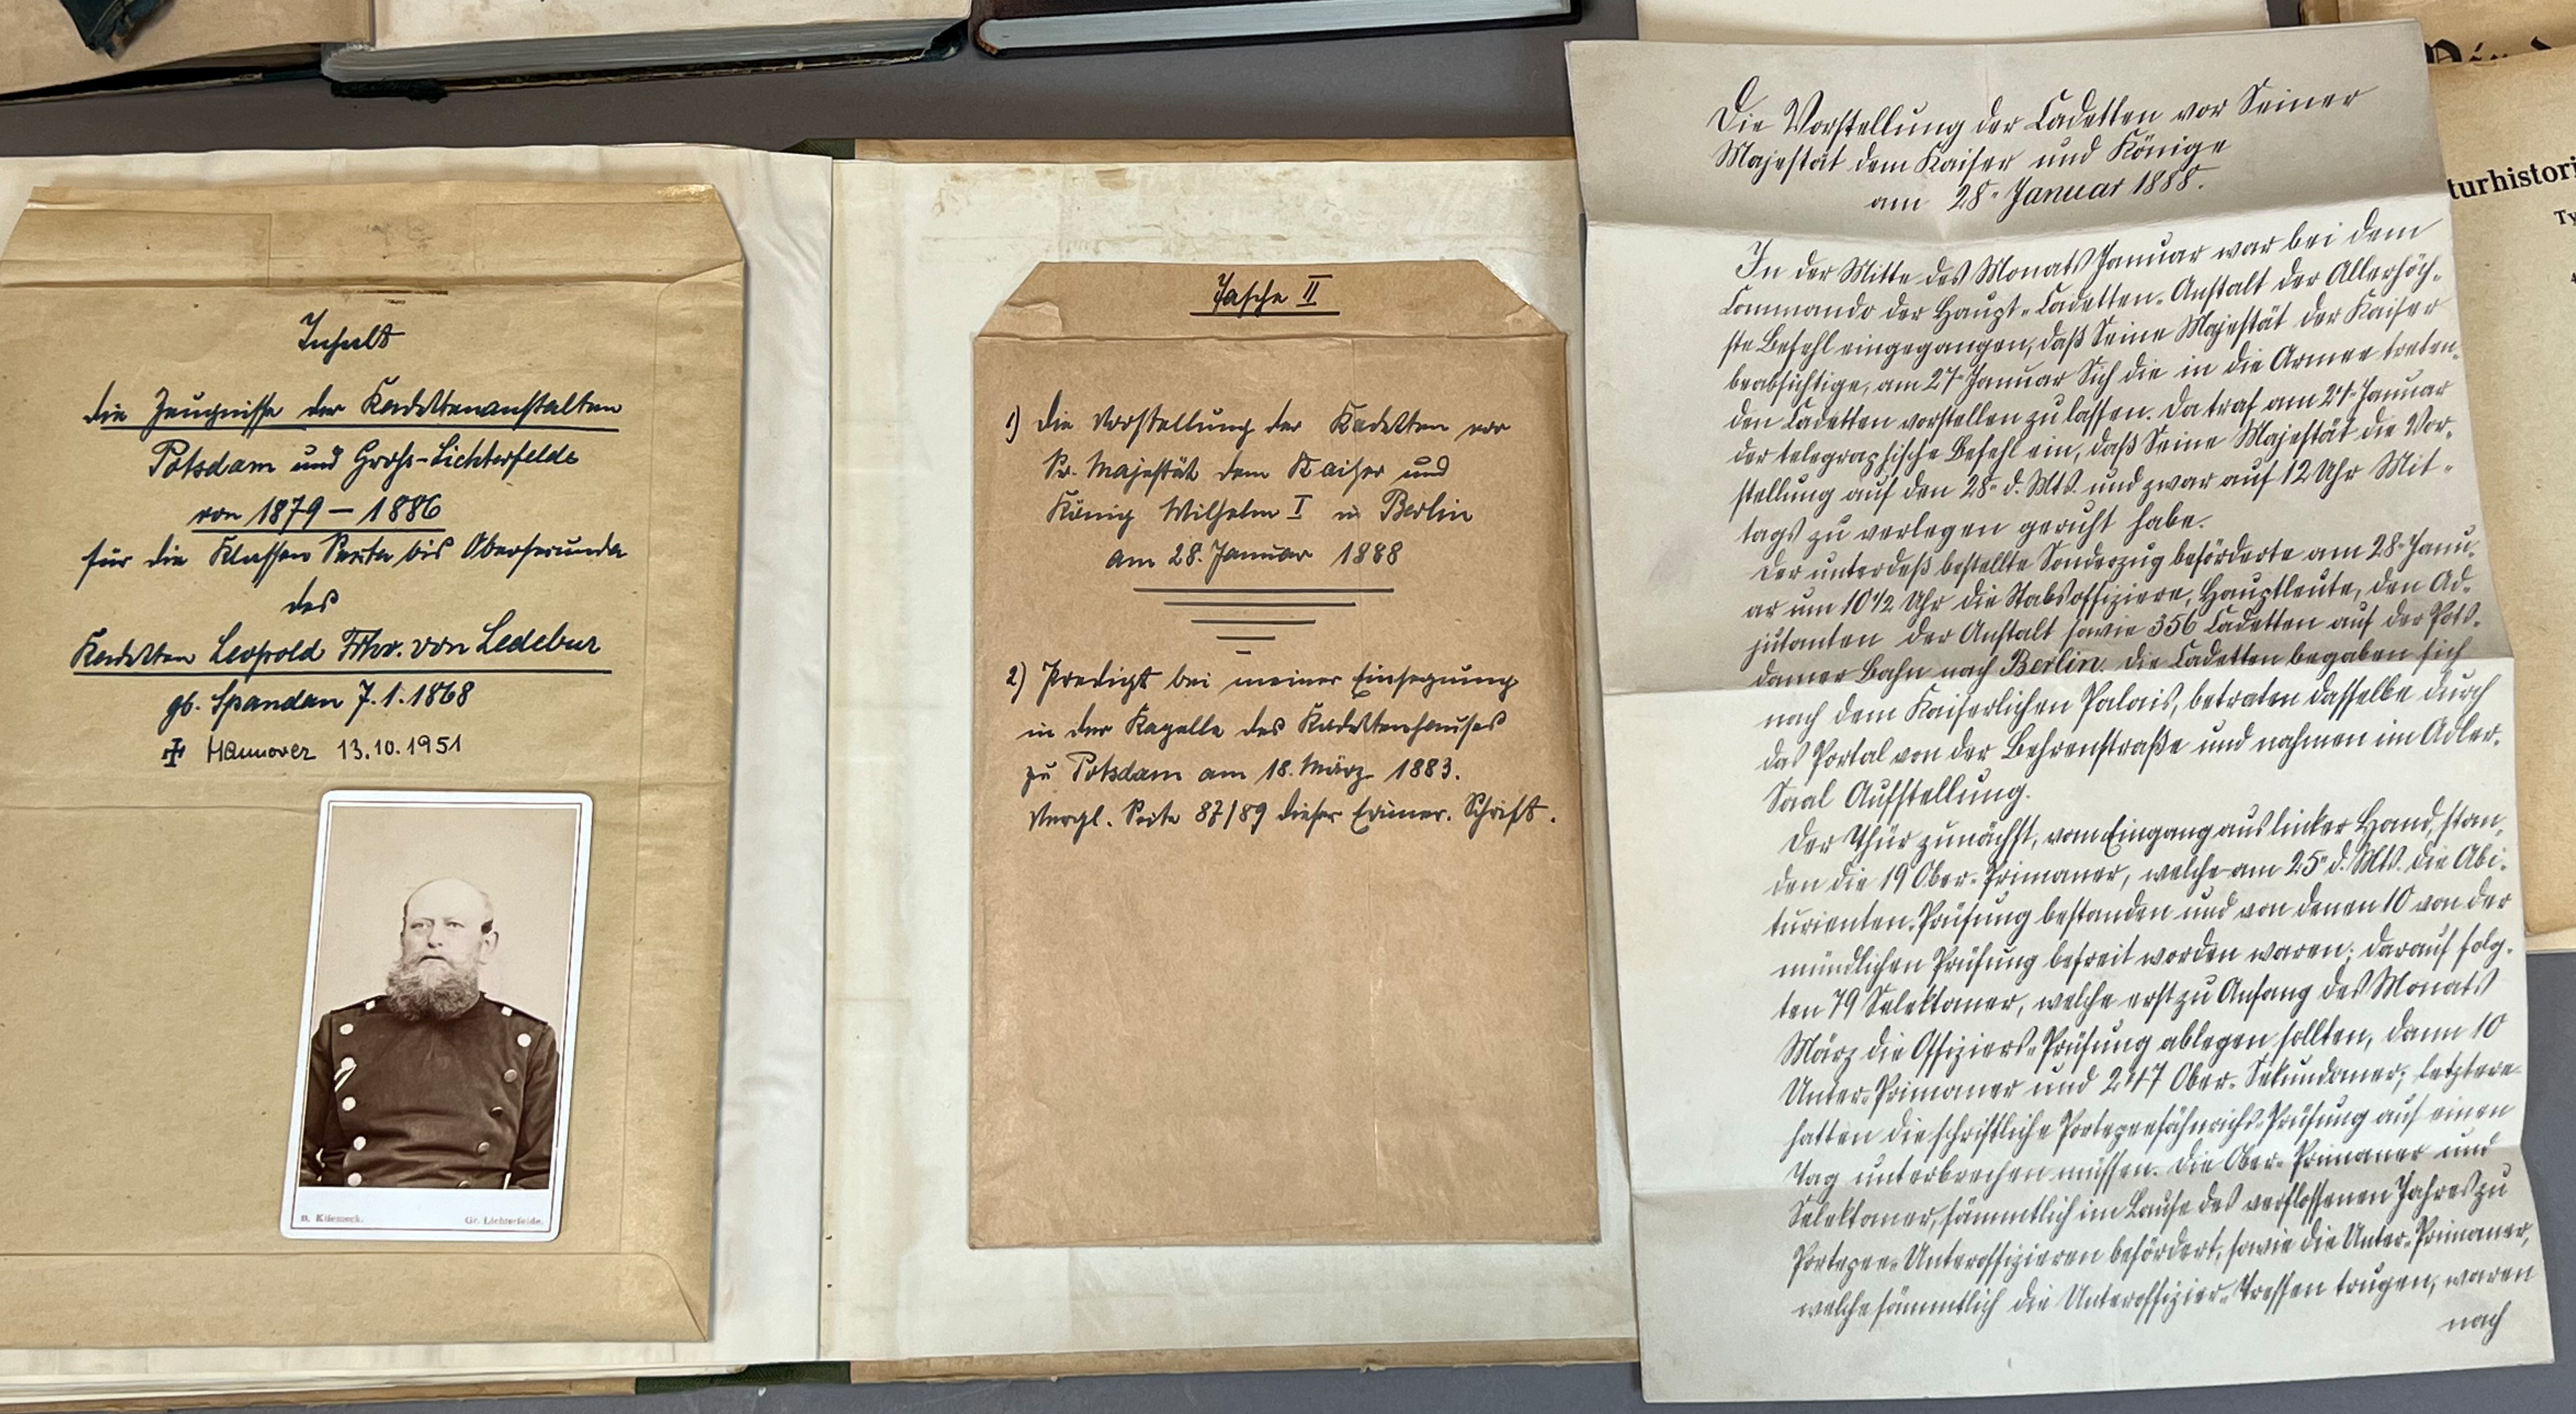 Inhalt
die Zeugnisse der Kadettenanstalten
Potsdam und Groß-Lichterfelde
von 1879 – 1886
für die Klassen Sexta bis Obersecunda
des
Kadetten Leopold Frhr. von Ledebur
gb. Spandau 7.1.1868
Hannover 13.10.1951
Gr. Lichterfelde.
Tasche II
1) die Vorstellung der Kadetten vor
Sr. Majestät dem Kaiser und
König Wilhelm I in Berlin
am 28. Januar 1888
2) Predigt bei meiner Einsegnung
in der Kapelle des Kadettenhauses
zu Potsdam am 18. März 1883.
Vergl. Seite 87/89 dieser Erinner. Schrift.
Die Vorstellung der Cadetten vor Seiner
Majestät dem Kaiser und Könige
am 28ⁿ Januar 1888.
In der Mitte des Monats Januar war bei dem
Commando der Haupt-Cadetten-Anstalt der Allerhöch-
ste Befehl eingegangen, daß Seine Majestät der Kaiser
beabsichtige, am 27ⁿ Januar Sich die in die Armee treten-
den Cadetten vorstellen zu lassen. Da traf am Januar
der telegraphische Befehl ein, daß Seine Majestät die Vor-
stellung auf den 28ⁿ d. Mts. und zwar auf 12 Uhr Mit-
tags zu verlegen geruht habe.
Der unterdeß bestellte Sonderzug beförderte am 28ⁿ Janu-
ar um 10 1/2 Uhr die Stabsoffiziere, Hauptleute, den Ad-
jutanten der Anstalt sowie 356 Cadetten auf der Pots-
damer Bahn nach Berlin. Die Cadetten begaben sich
nach dem Kaiserlichen Palais, betraten dasselbe durch
das Portal von der Behrenstraße und nahmen im Adler-
Saal Aufstellung.
Der Thür zunächst, vom Eingang aus linker Hand, stan-
den die 19 Ober-Primaner, welche am 25ⁿ d. Mts. die Abi-
turienten-Prüfung bestanden und von denen 10 von der
mündlichen Prüfung befreit worden waren; darauf folg-
ten 79 Selektaner, welche erst zu Anfang des Monats
März die Offiziers-Prüfung ablegen sollten, dann 10
Unter-Primaner und 247 Ober-Sekundaner; letztere
hatten die schriftliche Portepeefähnrichs-Prüfung auf einen
Tag unterbrechen müssen. Die Ober-Primaner und
Selektaner, sämmtlich im Laufe des verflossenen Jahres zu
Portepee-Unteroffizieren befördert, sowie die Unter-Primaner,
welche sämmtlich die Unteroffizier-Tressen trugen, waren
nach
turhistori
Ty